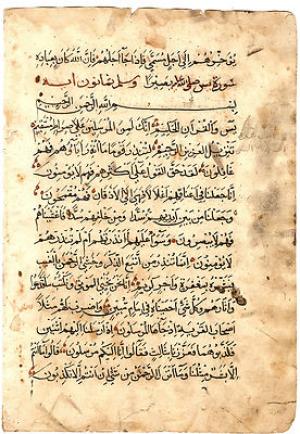 يؤخرهم إلى أجل مسمى فإذا جاء أجلهم فإن الله كان بعباده
سورة يس بصيرا وثمانون اية
بسم الله الرحمن الرحيم
يس والقرآن الحكيم إنك لمن المرسلين على صراط مستقيم
تنزيل العزيز الرحيم لتنذر قوما ما أنذر آباؤهم فهم
غافلون لقد حق القول على أكثرهم فهم لا يؤمنون
إنا جعلنا في أعناقهم أغلالا فهي إلى الأذقان فهم مقمحون
وجعلنا من بين أيديهم سدا ومن خلفهم سدا فأغشيناهم
فهم لا يبصرون وسواء عليهم أأنذرتهم أم لم تنذرهم
لا يؤمنون إنما تنذر من اتبع الذكر وخشي الرحمن بالغيب
فبشره بمغفرة وأجر كريم إنا نحن نحيي الموتى ونكتب ما قدموا
وآثارهم وكل شيء أحصيناه في إمام مبين واضرب لهم مثلا
أصحاب القرية إذ جاءها المرسلون إذ أرسلنا إليهم اثنين
فكذبوهما فعززنا بثالث فقالوا إنا إليكم مرسلون قالوا ما أنتم
إلا بشر مثلنا وما أنزل الرحمن من شيء إن أنتم إلا تكذبون